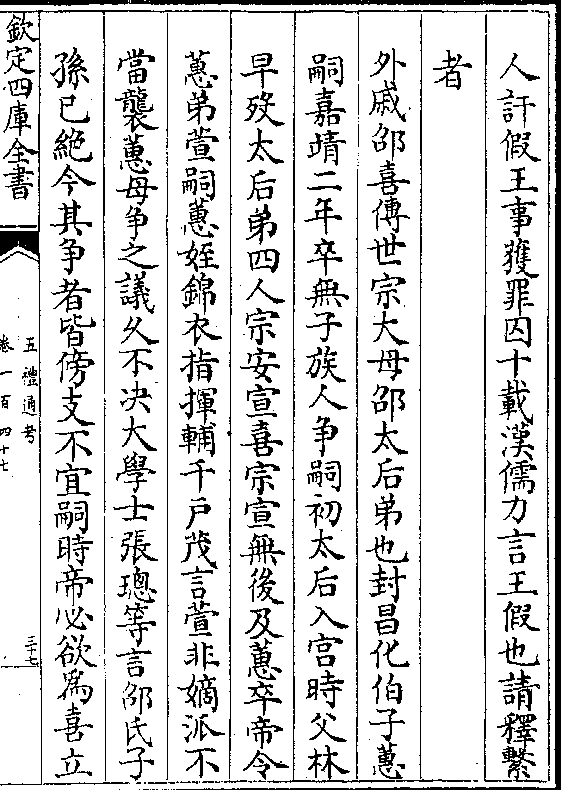 人訐假王事獲罪囚十載漢儒力言王假也請釋繫
者
外戚邵喜傳世宗大母邵太后弟也封昌化伯子蕙
嗣嘉靖二年卒無子族人争嗣初太后入宫時父林
早歿太后弟四人宗安宣喜宗宣無後及蕙卒帝令
蕙弟萱嗣蕙姪錦衣指揮輔千戶茂言萱非嫡派不
當襲蕙母争之議久不决大學士張璁等言邵氏子
孫已絶今其争者皆傍支不宜嗣時帝必欲爲喜立
欽定四庫全書
五禮通考
卷一百四十七
三十七